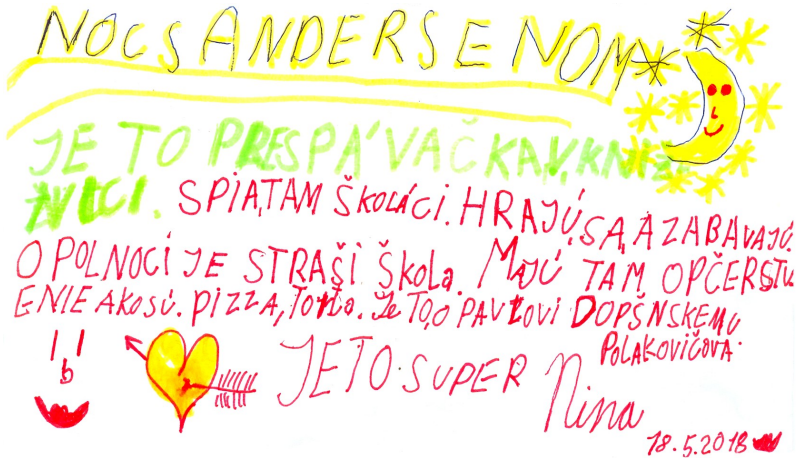 NOC S ANDERSENOM
JE TO PRESPÁVAČKA V KNIŽ
NICI. SPIA TAM ŠKOLÁCI. HRAJÚ SA, A ZABAVAJÚ.
O POLNOCI JE STRAŠI ŠKOLA. MAJÚ TAM OPČERSTV
ENIE AKO SÚ. PIZZA, TORTA. Je TO, O PAVLOVI DOPŠNSKEMU
POLAKOVIČOVA.
JE TO SUPER Nina
18.5.2018